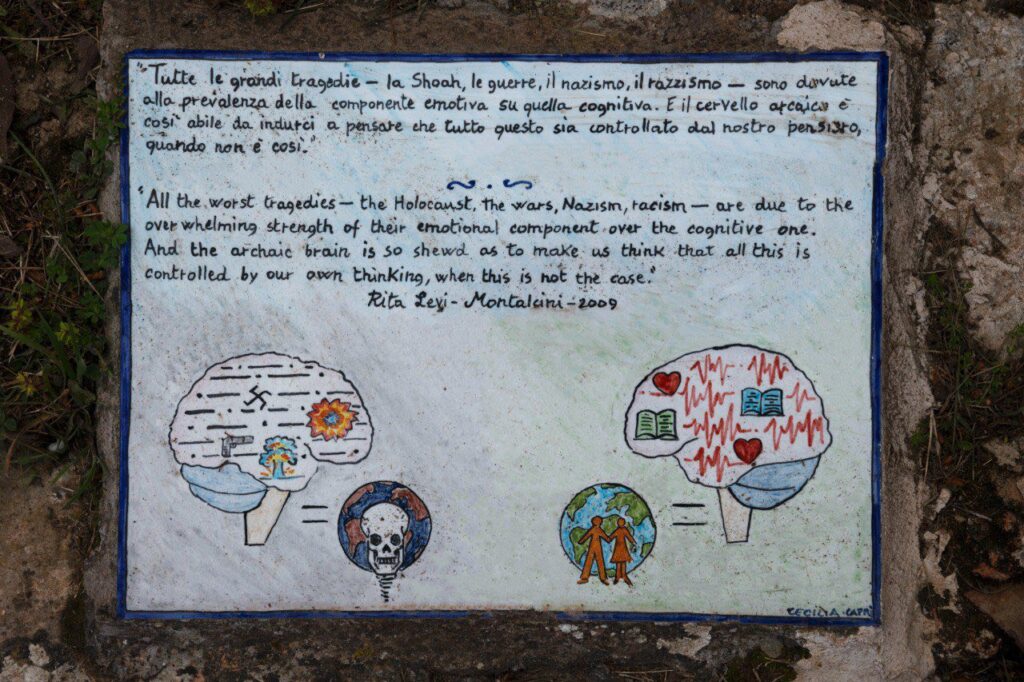 "Tutte le grandi tragedie — la Shoah, le guerre, il nazismo, il razzismo — sono dovute
alla prevalenza della componente emotiva su quella cognitiva. E il cervello arcaico è
così abile da indurci a pensare che tutto questo sia controllato dal nostro pensiero,
quando non è così."
"All the worst tragedies — the Holocaust, the wars, Nazism, racism — are due to the
overwhelming strength of their emotional component over the cognitive one.
And the archaic brain is so shewd as to make us think that all this is
controlled by our own thinking, when this is not the case."
Rita Levi-Montalcini - 2009
= =
CECILIA · CAPRÌ